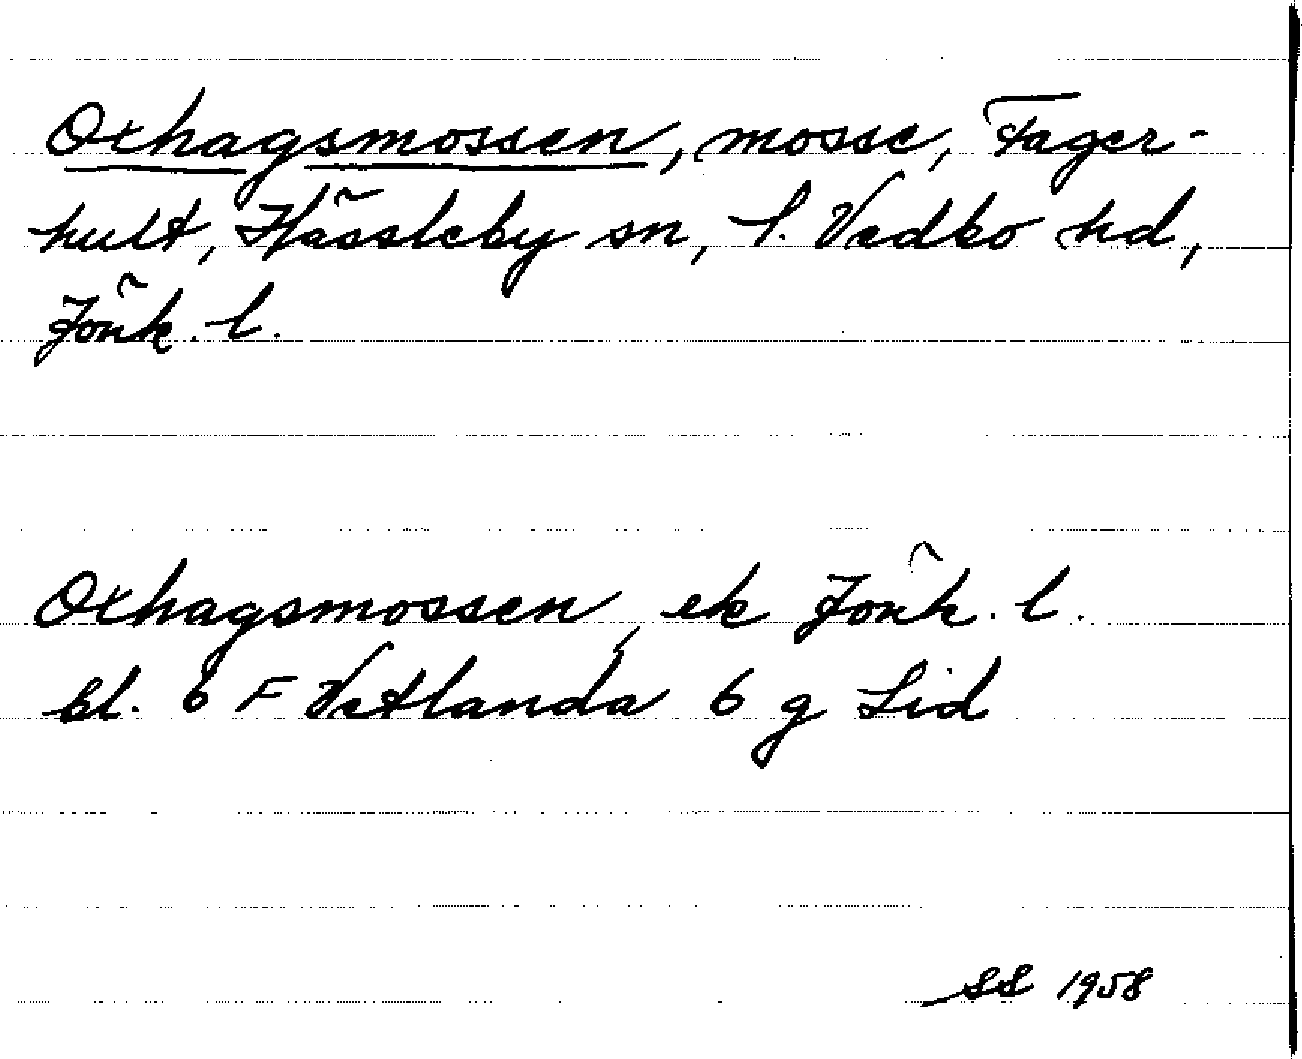 Oxhagsmossen, mosse, Fager-
hult, Hässleby sn, S. Vedbo hd,
Jönk. l.
Oxhagsmossen, ek Jönk. l.
bl. 6 F Vetlanda 6 g Sid
SS 1958